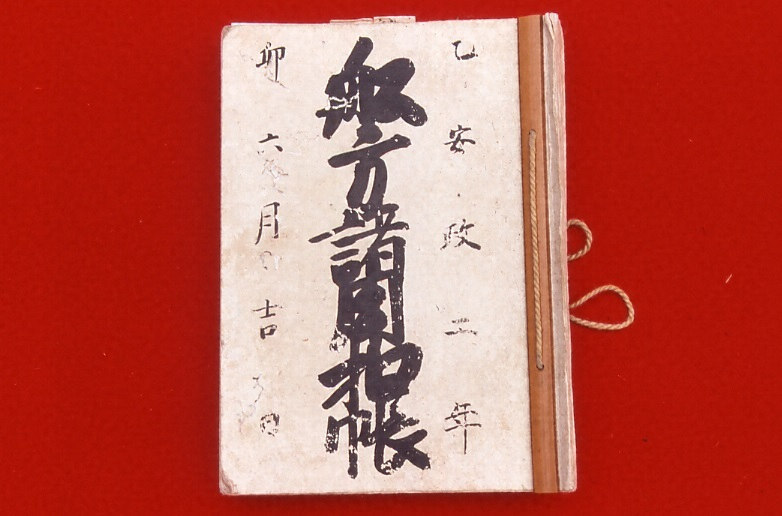 乙安政二年
船方諸扣帳
卯六月吉日